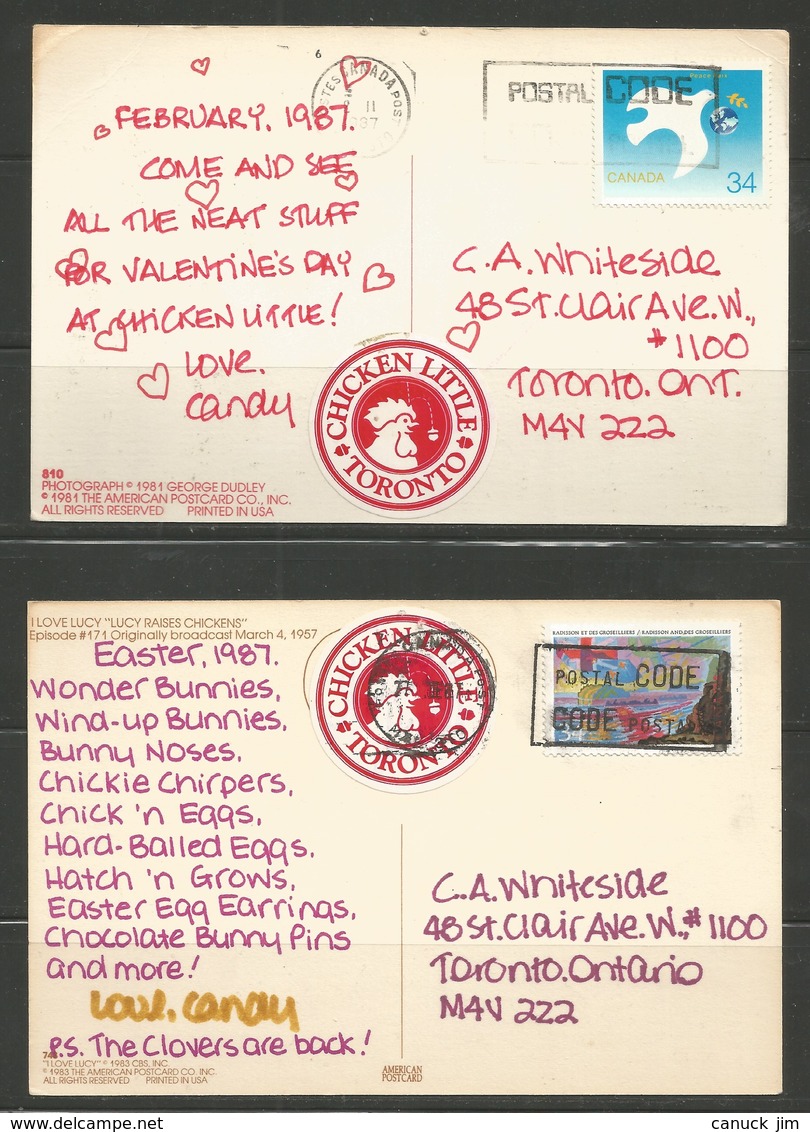 6
POSTES CANADA POST
II
POSTAL CODE
Peace
CANADA
34
FEBRUARY, 1987.
COME AND SEE
ALL THE NEAT STUFF
FOR VALENTINE'S DAY
AT CHICKEN LITTLE!
LOVE.
Candy
C.A. Whiteside
48 St. Clair Ave. W.,
#1100
Toronto. Ont.
M4V 2Z2
CHICKEN LITTLE
TORONTO
810
PHOTOGRAPH © 1981 GEORGE DUDLEY
© 1981 THE AMERICAN POSTCARD CO., INC.
ALL RIGHTS RESERVED PRINTED IN USA
I LOVE LUCY "LUCY RAISES CHICKENS"
Episode #171 Originally broadcast March 4, 1957
Easter, 1987.
Wonder Bunnies,
Wind-up Bunnies,
Bunny Noses,
Chickie Chirpers,
Chick 'n Eggs,
Hard-Balled Eggs,
Hatch 'n Grows,
Easter Egg Earrings,
Chocolate Bunny Pins
and more!
Love. Candy
P.S. The Clovers are back!
CHICKEN LITTLE
TORONTO
RADISSON ET DES GROSEILLIERS / RADISSON AND DES GROSEILLIERS
POSTAL CODE
CODE POSTAL
C.A. Whiteside
48 St. Clair Ave. W., #1100
Toronto. Ontario
M4V 2Z2
"I LOVE LUCY" © 1983 CBS, INC.
© 1983 THE AMERICAN POSTCARD CO. INC.
ALL RIGHTS RESERVED PRINTED IN USA
AMERICAN
POSTCARD
canuck jim